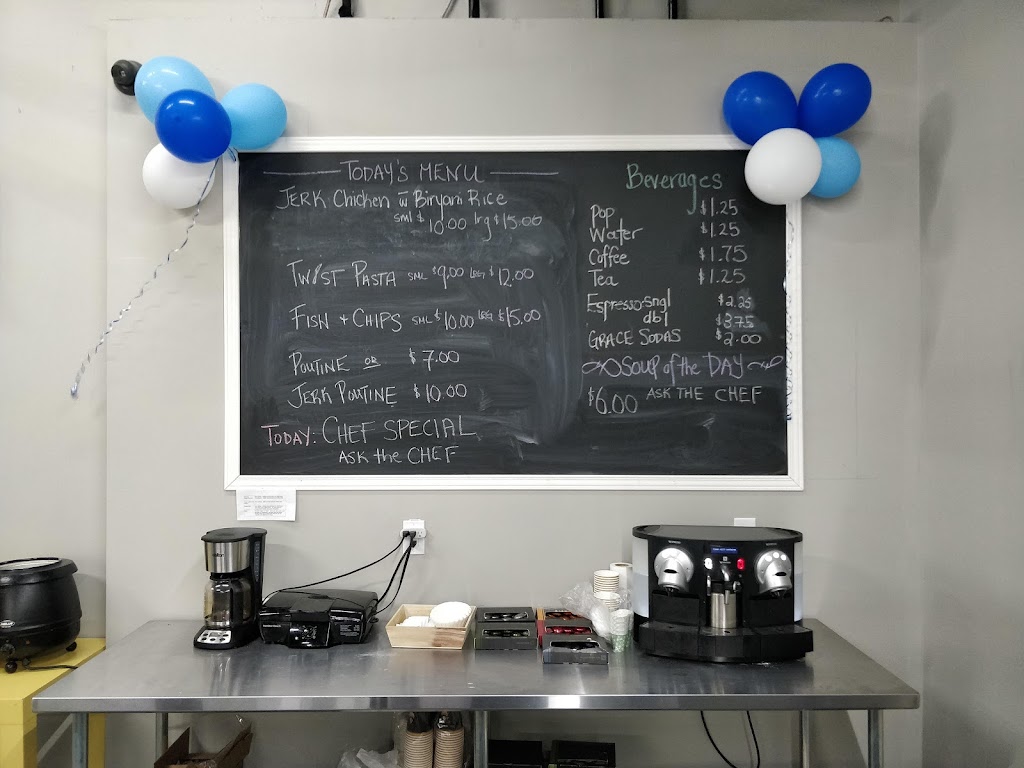 TODAY'S MENU
JERK Chicken w Biryani Rice
sml $10.00 lrg $15.00
TWIST PASTA SML $9.00 LRG $12.00
FISH + CHIPS SML $10.00 LRG $15.00
POUTINE OR $7.00
JERK POUTINE $10.00
TODAY: CHEF SPECIAL
ASK the CHEF
Beverages
Pop $1.25
Water $1.25
Coffee $1.75
Tea $1.25
Espresso-Sngl $2.25
dbl $3.75
GRACE SODAS $2.00
SOUP of the DAY
$6.00 ASK THE CHEF